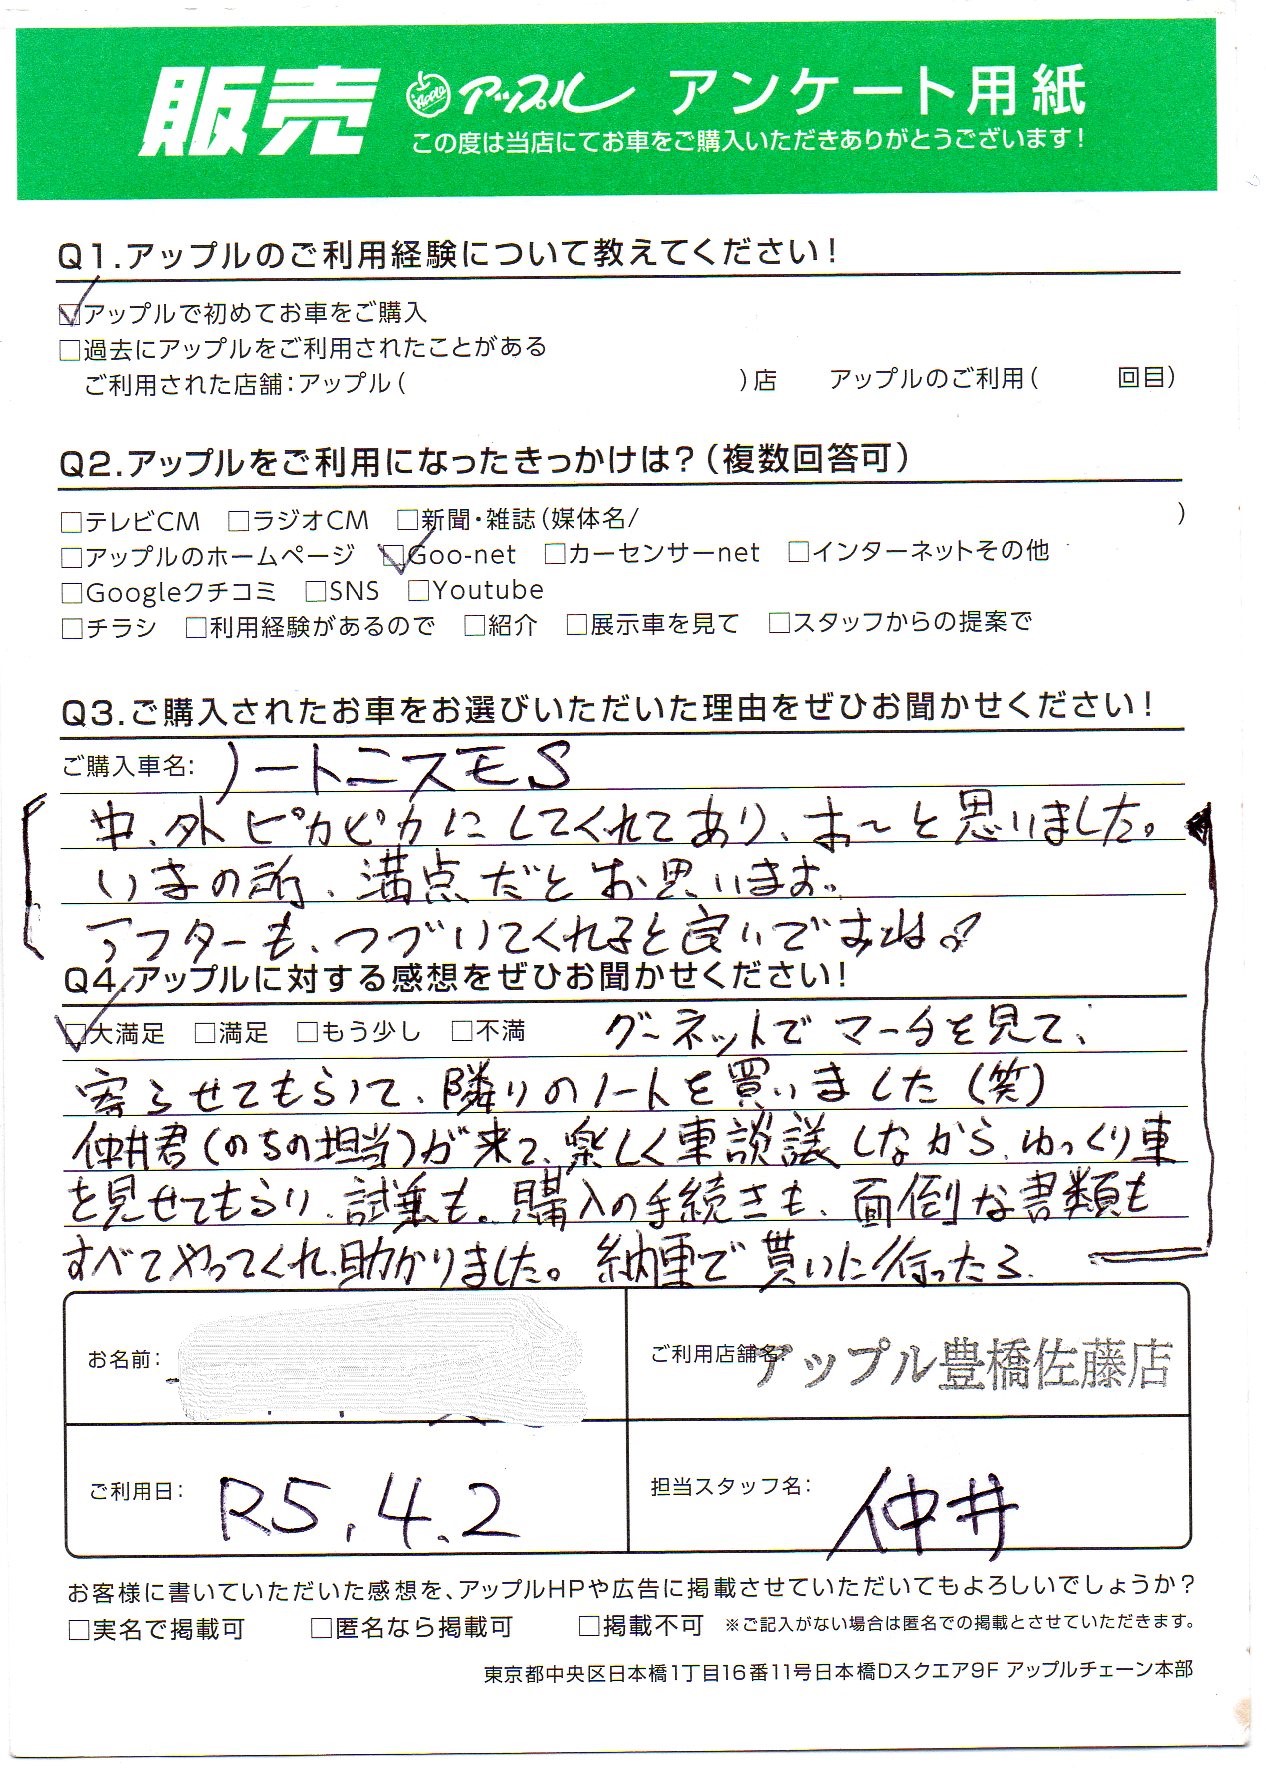 販売 Apple アップル アンケート用紙
この度は当店にてお車をご購入いただきありがとうございます!
Q1.アップルのご利用経験について教えてください!
☑アップルで初めてお車をご購入
□過去にアップルをご利用されたことがある
ご利用された店舗:アップル( )店 アップルのご利用( 回目)
Q2.アップルをご利用になったきっかけは?(複数回答可)
□テレビCM □ラジオCM □新聞・雑誌(媒体名/ )
□アップルのホームページ ☑Goo-net □カーセンサーnet □インターネットその他
□Googleクチコミ □SNS □Youtube
□チラシ □利用経験があるので □紹介 □展示車を見て □スタッフからの提案で
Q3.ご購入されたお車をお選びいただいた理由をぜひお聞かせください!
ご購入車名: ノートニスモS
中、外ピカピカにしてくれてあり、お〜と思いました。
いまの所、満点だとお思います。
アフターも、つづいてくれると良いですね♂
Q4.アップルに対する感想をぜひお聞かせください!
☑大満足 □満足 □もう少し □不満 グーネットでマーチを見て、
寄らせてもらいて、隣りのノートを買いました(笑)
仲井君(のちの担当)が来て、楽しく車談議しながら、ゆっくり車
を見せてもらり、試乗も。購入の手続きも、面倒な書類も
すべてやってくれ、助かりました。納車で貰いに行ったら、
お名前:
ご利用店舗名: アップル豊橋佐藤店
ご利用日: R5.4.2
担当スタッフ名: 仲井
お客様に書いていただいた感想を、アップルHPや広告に掲載させていただいてもよろしいでしょうか?
□実名で掲載可 □匿名なら掲載可 □掲載不可 ※ご記入がない場合は匿名での掲載とさせていただきます。
東京都中央区日本橋1丁目16番11号日本橋Dスクエア9F アップルチェーン本部